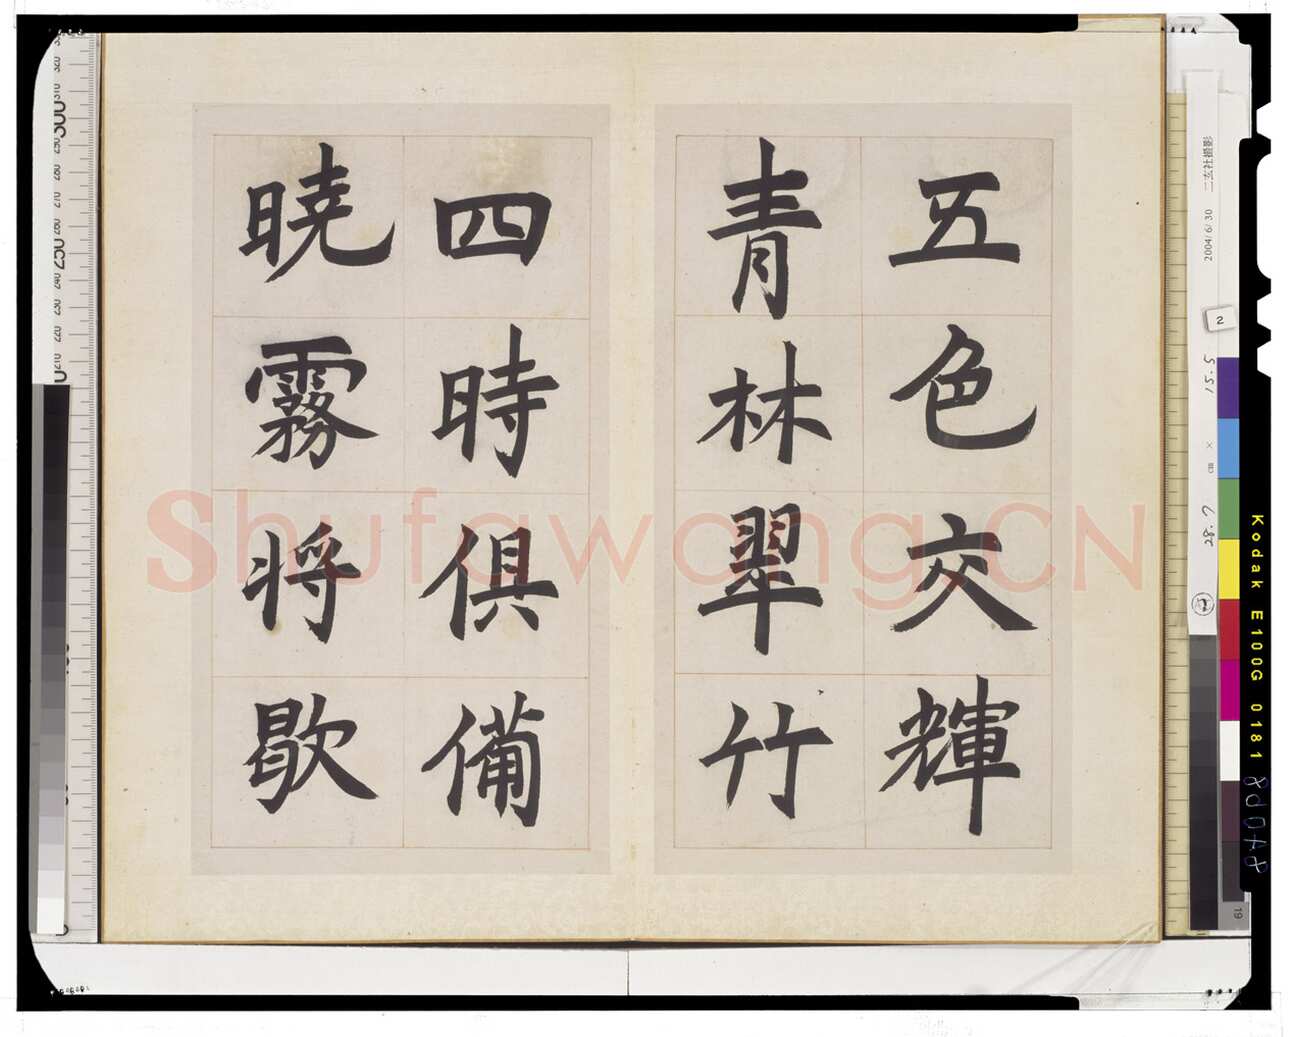 五色交輝
青林翠竹
四時俱備
曉霧将歇
Shufawang.CN
二玄社撮影
2004/6/30
2
28.7 cm × 15.5
Kodak E100G 0181
19